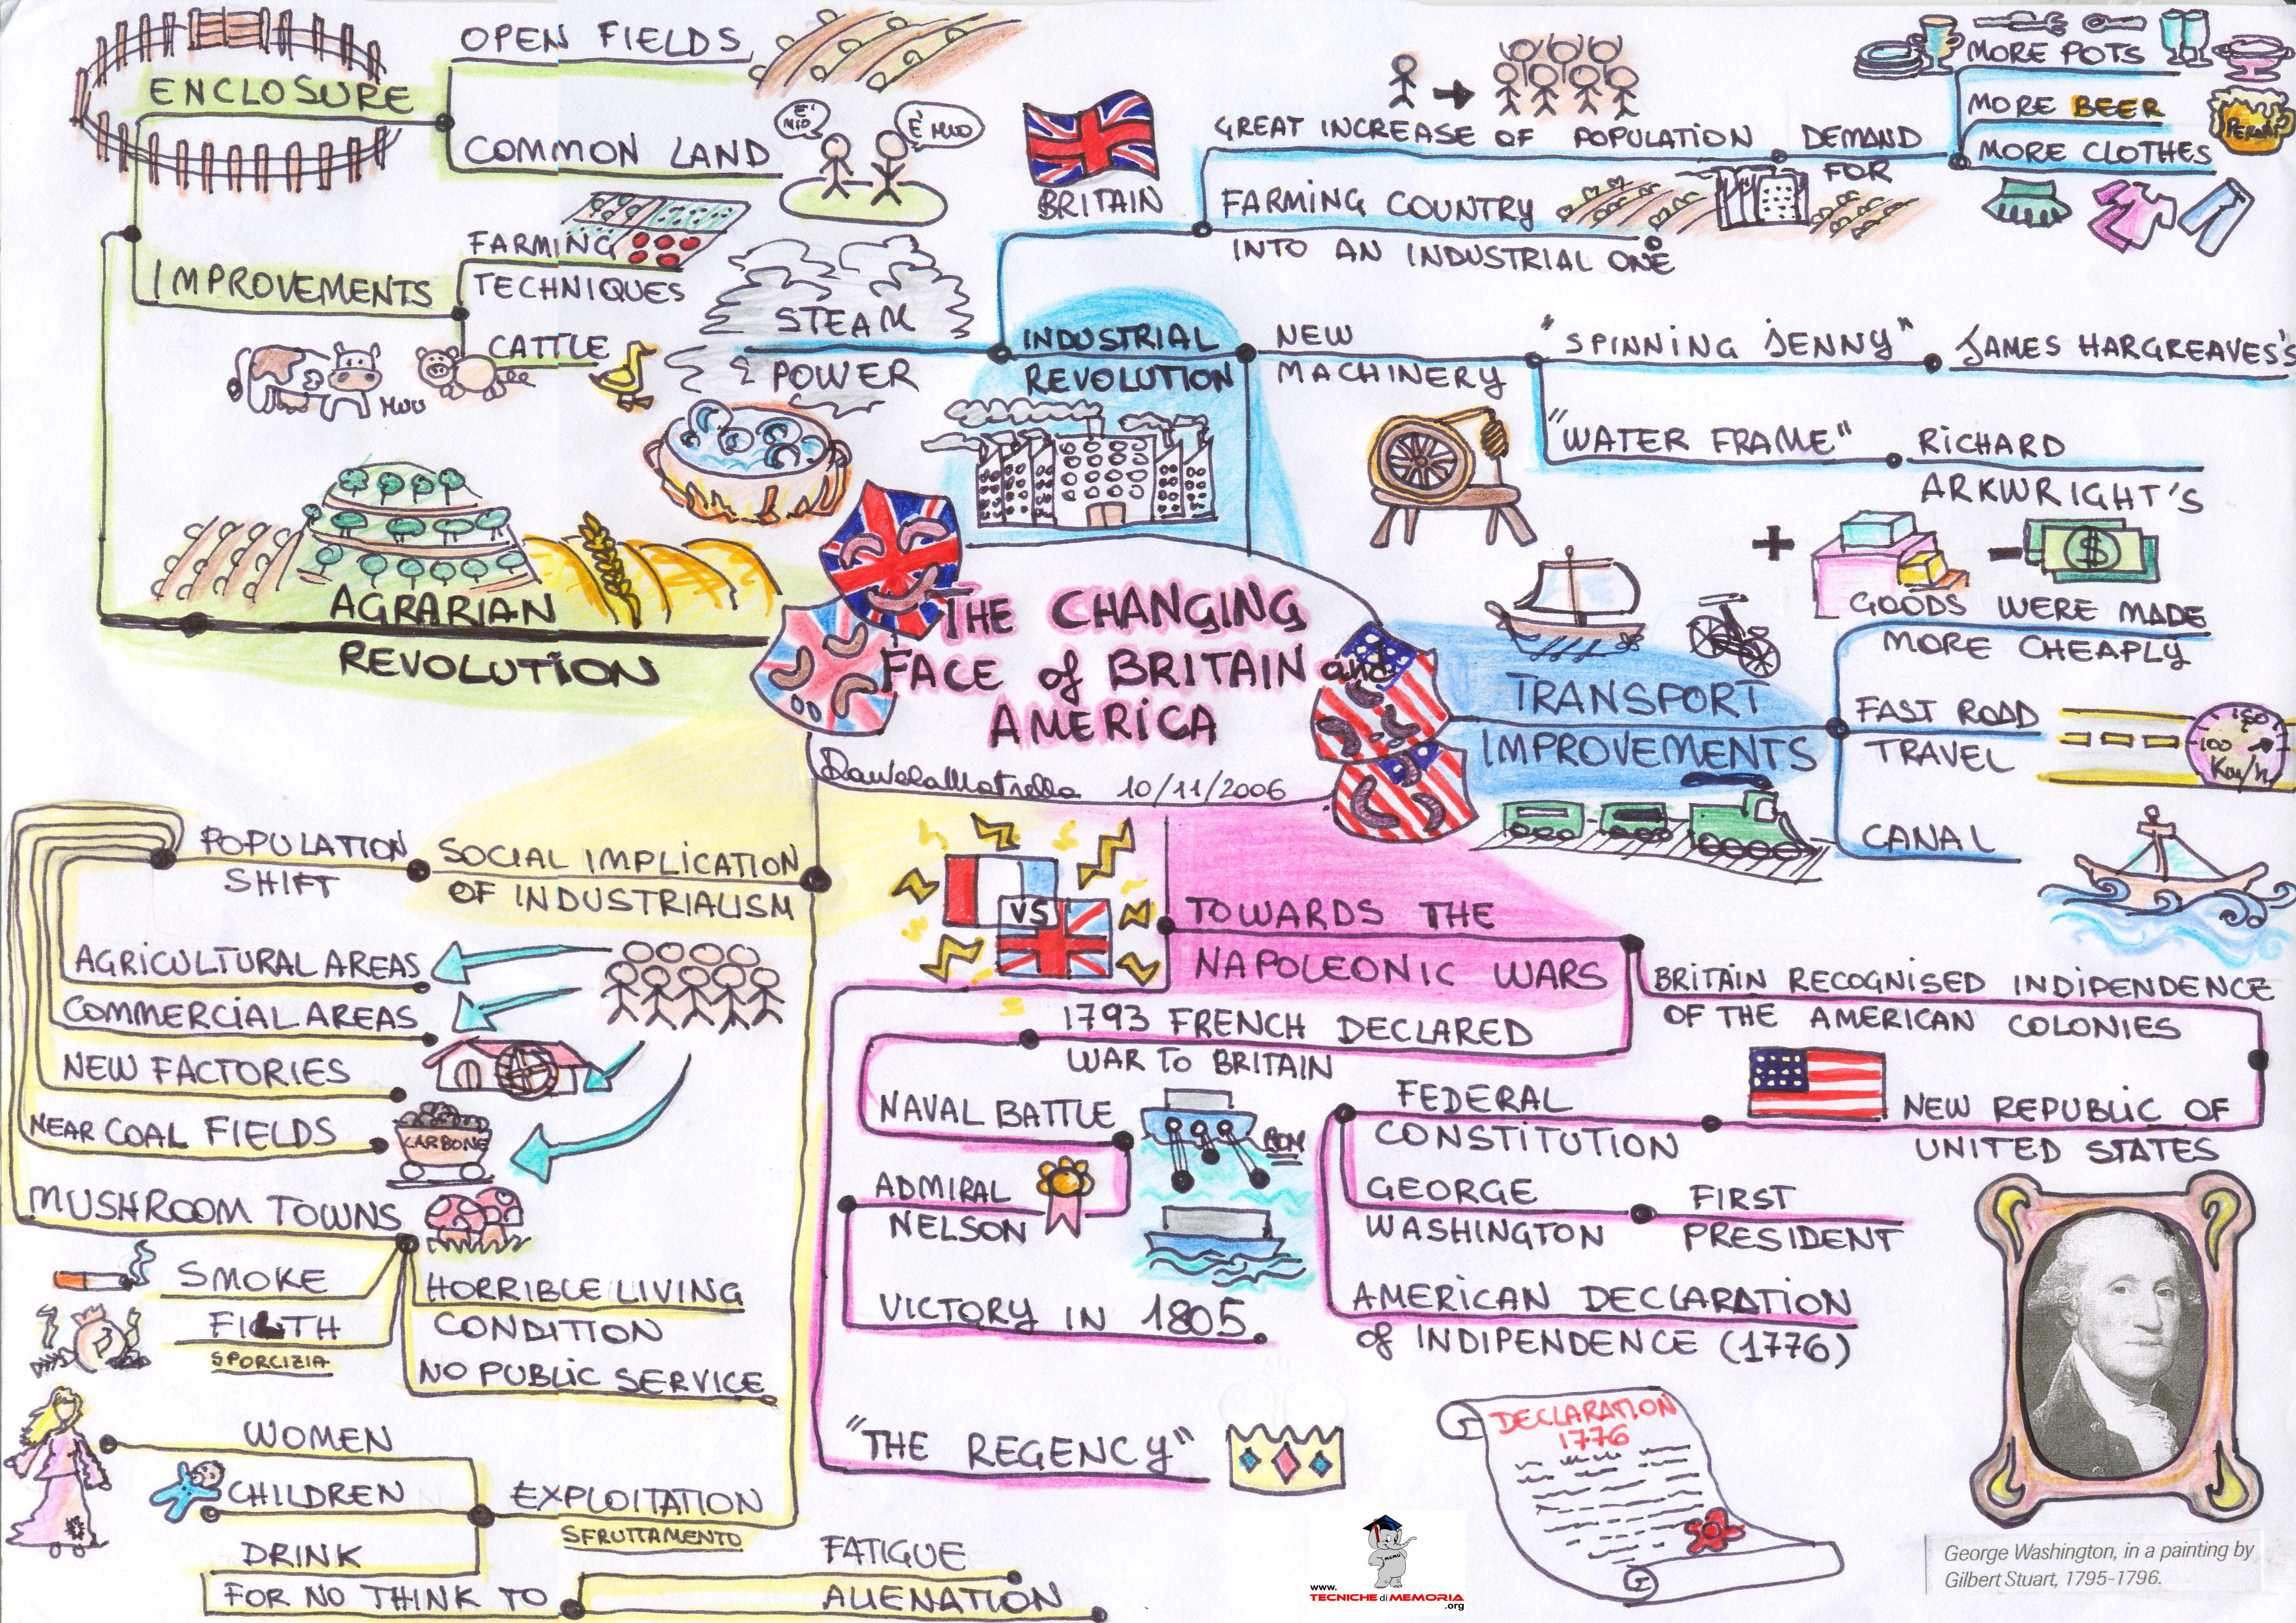 THE CHANGING
FACE of BRITAIN and
AMERICA
Daniela Matrella 10/11/2006
AGRARIAN
REVOLUTION
ENCLOSURE
OPEN FIELDS
COMMON LAND
E' MIO
È MIO
IMPROVEMENTS
FARMING
TECHNIQUES
CATTLE
MUU
INDUSTRIAL
REVOLUTION
STEAM
POWER
BRITAIN
GREAT INCREASE OF POPULATION
DEMAND
FOR
MORE POTS
MORE BEER
PERONI
MORE CLOTHES
FARMING COUNTRY
INTO AN INDUSTRIAL ONE
NEW
MACHINERY
"SPINNING JENNY"
JAMES HARGREAVES'S
"WATER FRAME"
RICHARD
ARKWRIGHT'S
TRANSPORT
IMPROVEMENTS
+
-
$
GOODS WERE MADE
MORE CHEAPLY
FAST ROAD
TRAVEL
150
100
Km/h
CANAL
TOWARDS THE
NAPOLEONIC WARS
VS
BRITAIN RECOGNISED INDIPENDENCE
OF THE AMERICAN COLONIES
NEW REPUBLIC OF
UNITED STATES
FEDERAL
CONSTITUTION
GEORGE
WASHINGTON
FIRST
PRESIDENT
AMERICAN DECLARATION
of INDIPENDENCE (1776)
DECLARATION
1776
1793 FRENCH DECLARED
WAR TO BRITAIN
NAVAL BATTLE
BOM
ADMIRAL
NELSON
VICTORY IN 1805
"THE REGENCY"
SOCIAL IMPLICATION
OF INDUSTRIALISM
POPULATION
SHIFT
AGRICULTURAL AREAS
COMMERCIAL AREAS
NEW FACTORIES
NEAR COAL FIELDS
CARBONE
MUSHROOM TOWNS
SMOKE
FILTH
SPORCIZIA
HORRIBLE LIVING
CONDITION
NO PUBLIC SERVICE
EXPLOITATION
SFRUTTAMENTO
WOMEN
CHILDREN
DRINK
FOR NO THINK TO
FATIGUE
ALIENATION
MEMO
www.
TECNICHE di MEMORIA
.org
George Washington, in a painting by
Gilbert Stuart, 1795-1796.